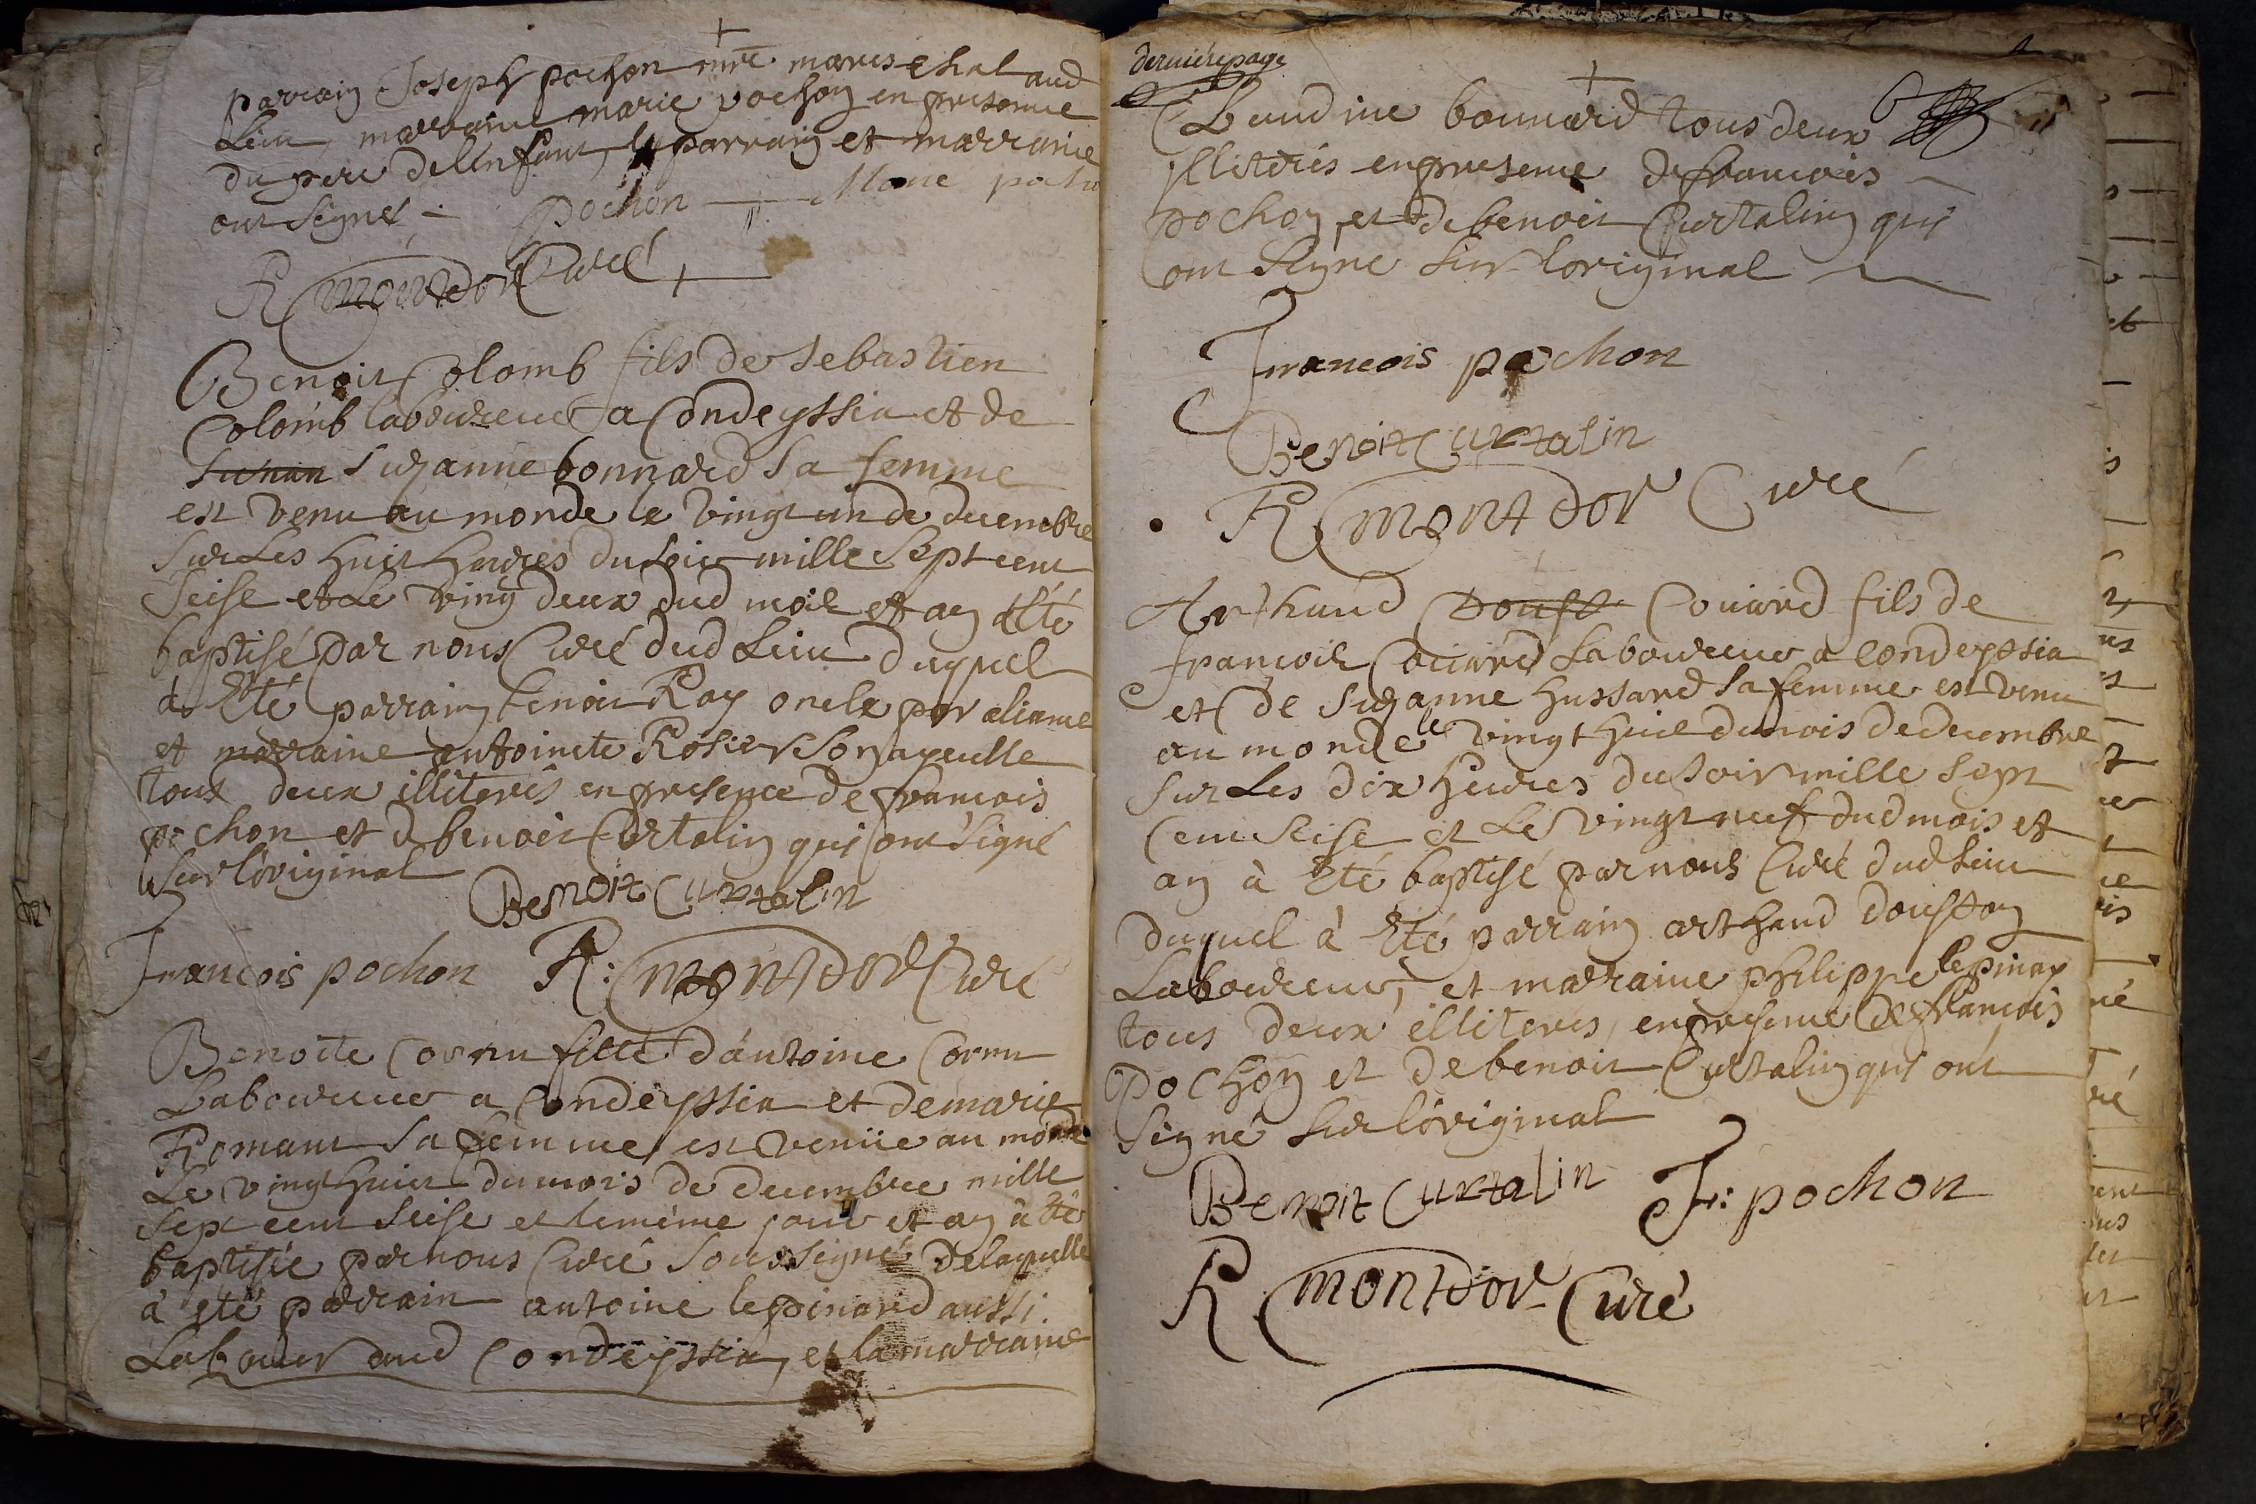 parrain Joseph pochon mre mareschal aud
Lieu, marraine marie pochon en presence
du pere de lenfant, le parrain et marraine
ont signes
pochon Marie
R montdor Curé
Benoit Colomb fils de Sebastien
Colomb laboureur a Condeyssia et de
Suzanne bonnard sa femme
est venu au monde le vingt un de decembre
sur Les huit heures du soir mille sept cent
seise et Le vingt deux dud mois et an a Eté
baptisé par nous Curé dud Lieu duquel
a Eté parrain benoit Ray oncle par aliance
et marraine antoinete Rosier son ayeulle
tous deux illiterés en presence de francois
pochon et de benoit Curtalin qui ont signé
sur loriginal
Benoit Curtalin
francois pochon R: montdor Curé
Benoite Cornu fille d'antoine Cornu
Laboureur a Condeyssia et de marie
Romant sa femme est venüe au monde
Le vingt huit du mois de decembre mille
sept cent seise et le méme jour et an à Eté
baptisée par nous Curé soussigné De laquelle
à Eté parrain antoine lepinard aussi
Laboureur aud Condeyssia, et la marraine
derniére page
Claudine bonnard tous deux
illiterés en presence de francois
pochon et de benoit Curtalin qui
ont signé sur loriginal
francois pochon
Benoit Curtalin
R montdor Curé
Arthaud Couard fils de
francois Couard Laboureur a Condeyssia
et de Suzanne hussard sa femme est venu
au monde le vingt huit du mois de decembre
sur Les dix heures du soir mille sept
cent seise et Le vingt neuf dud mois et
an à Eté baptisé par nous Curé dud Lieu
duquel à Eté parrain arthaud
Laboureur, et marraine philippe lepinay
tous deux illiteres, en presence de francois
pochon et de benoit Curtalin qui ont
signé sur loriginal
Benoit Curtalin Fr: pochon
R montdor Curé